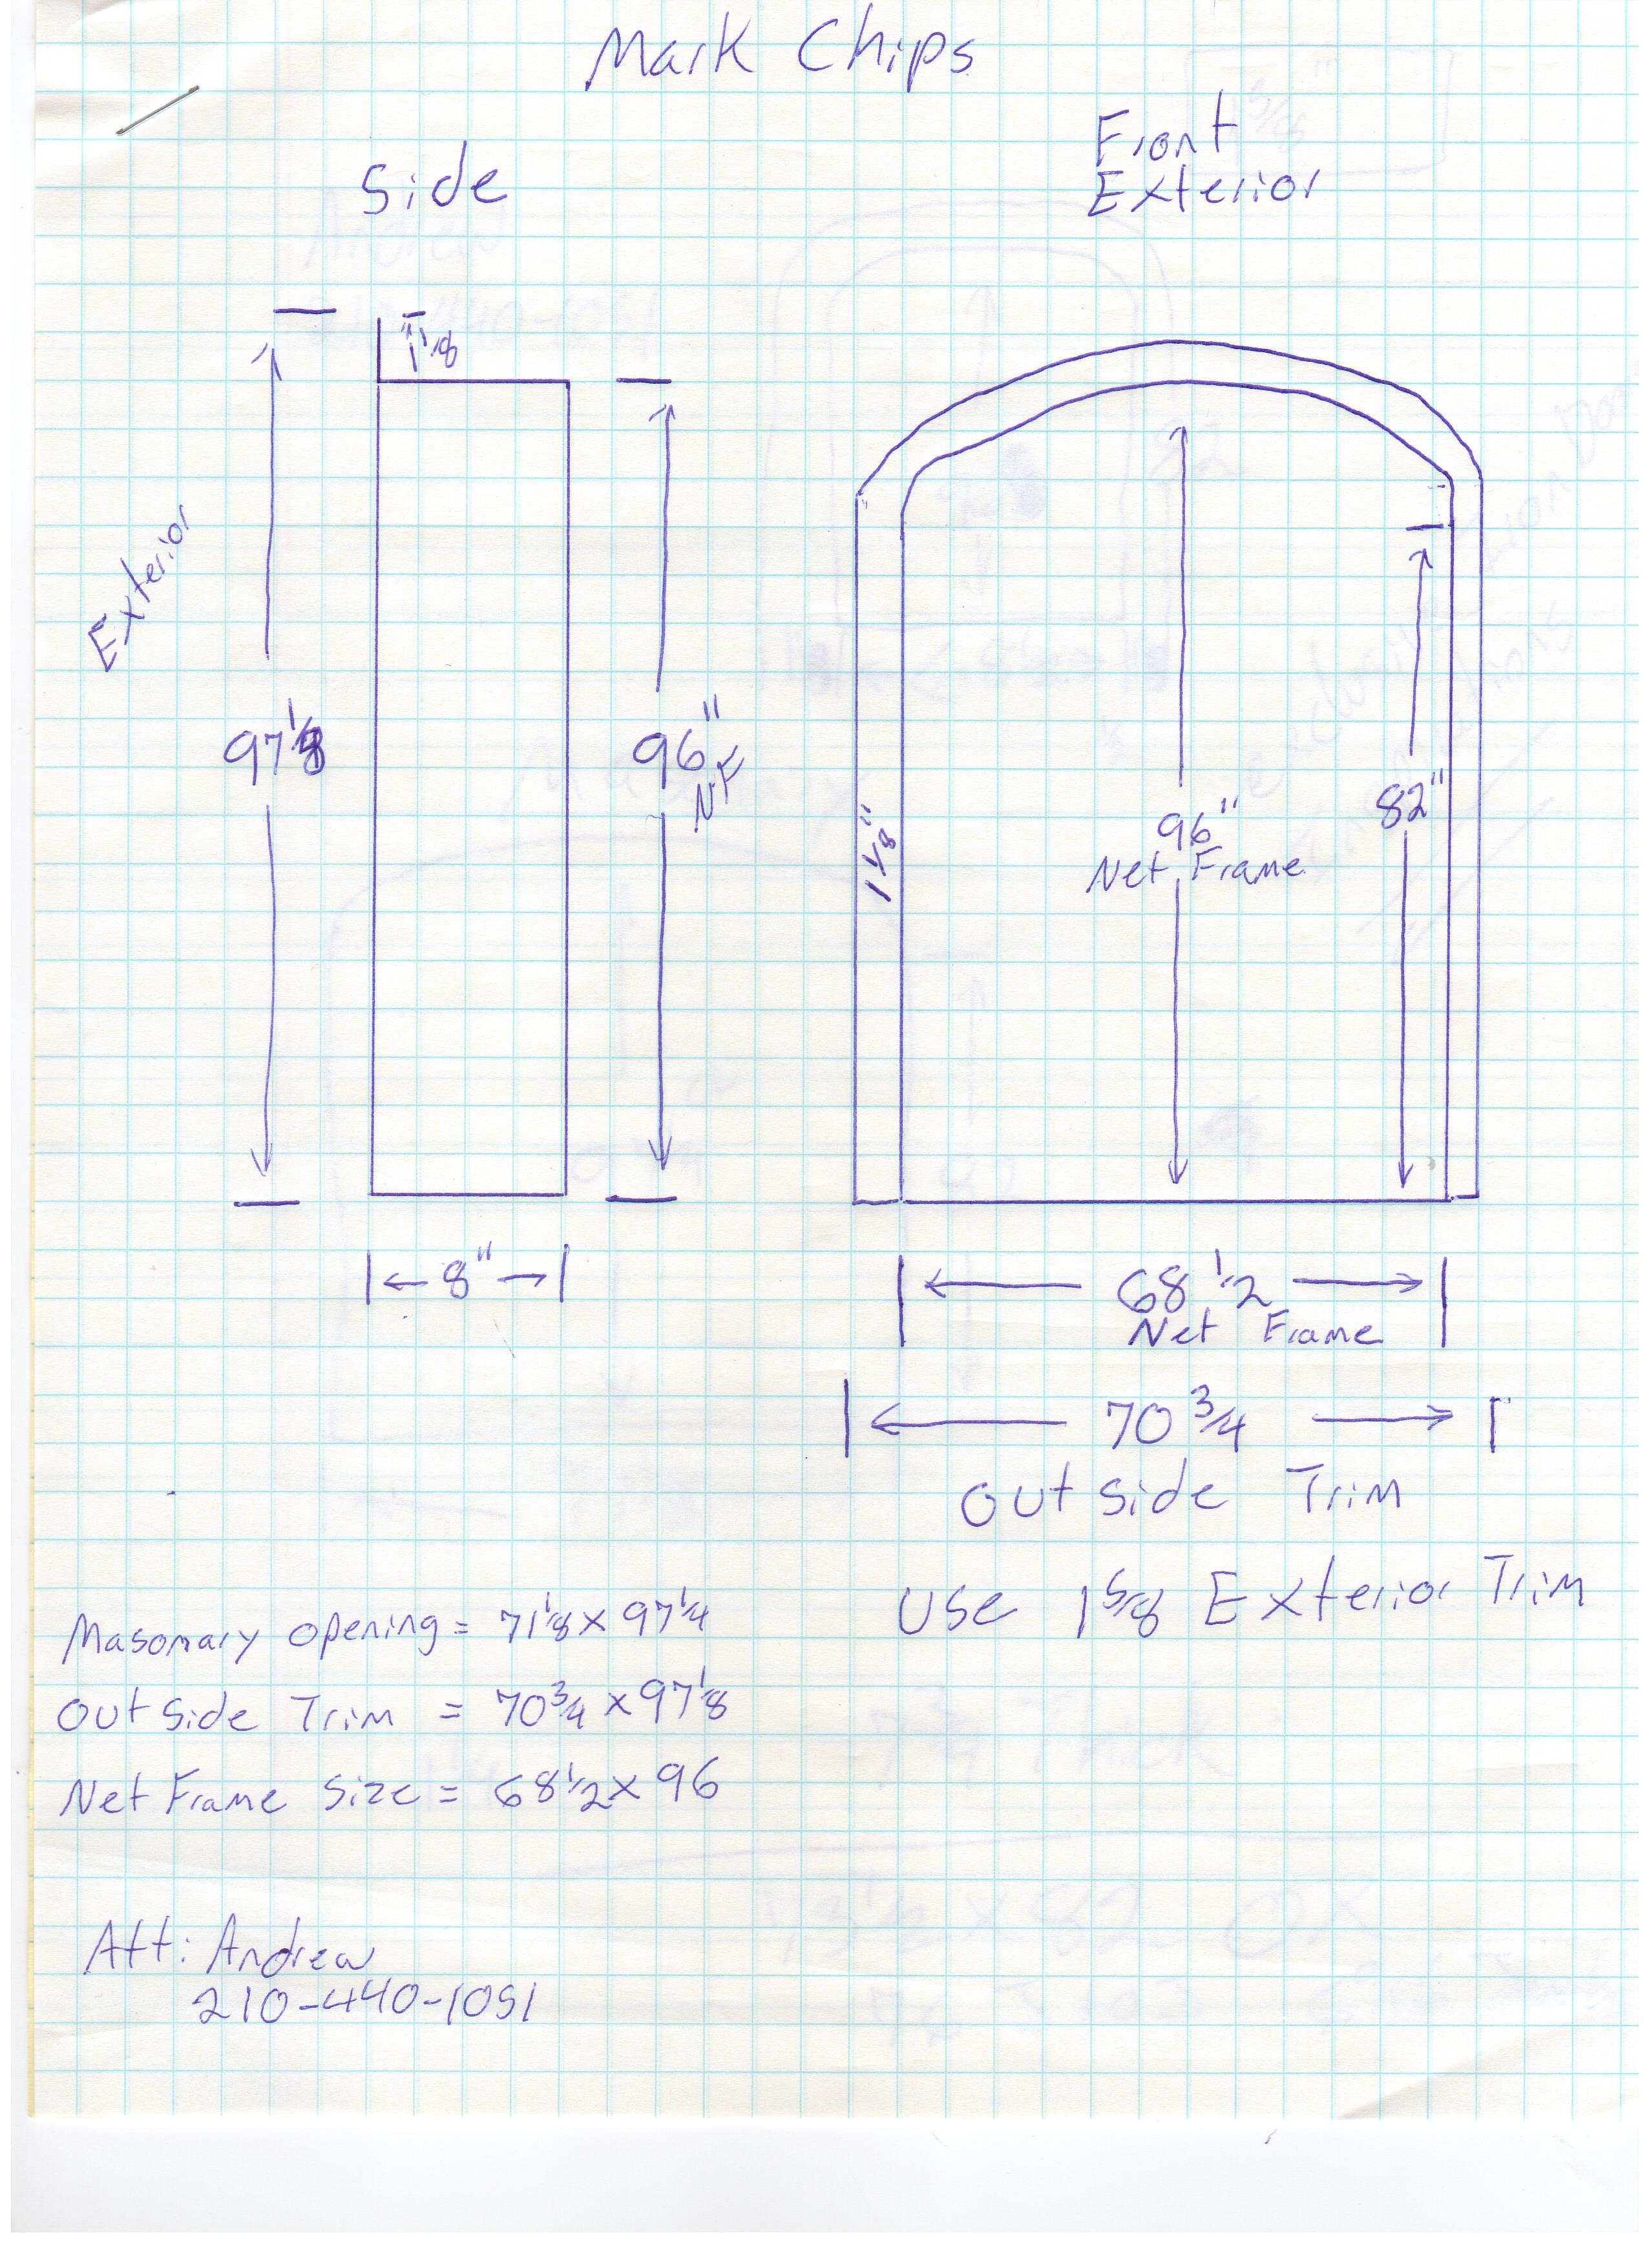 Mark Chips
Side
Front
Exterior
1 1/8"
Exterior
97 1/8
96"
N.F
1 1/8"
96"
Net Frame
82"
8"
68 1/2
Net Frame
70 3/4
Out Side Trim
Use 1 5/8 Exterior Trim
Masomary opening = 71 1/8 x 97 1/4
Out Side Trim = 70 3/4 x 97 1/8
Net Frame Size = 68 1/2 x 96
Att: Andrew
210-440-1051